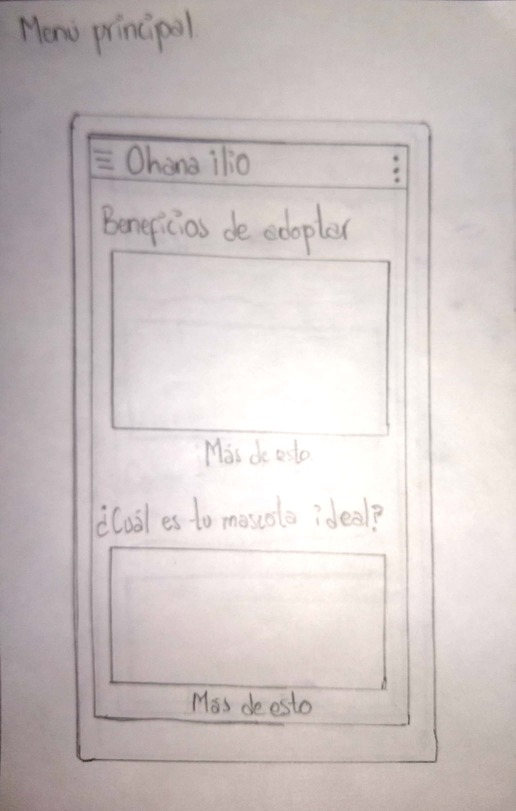 Menú principal
Ohana ilio
Beneficios de adoptar
Más de esto
¿Cuál es tu mascota ideal?
Más de esto